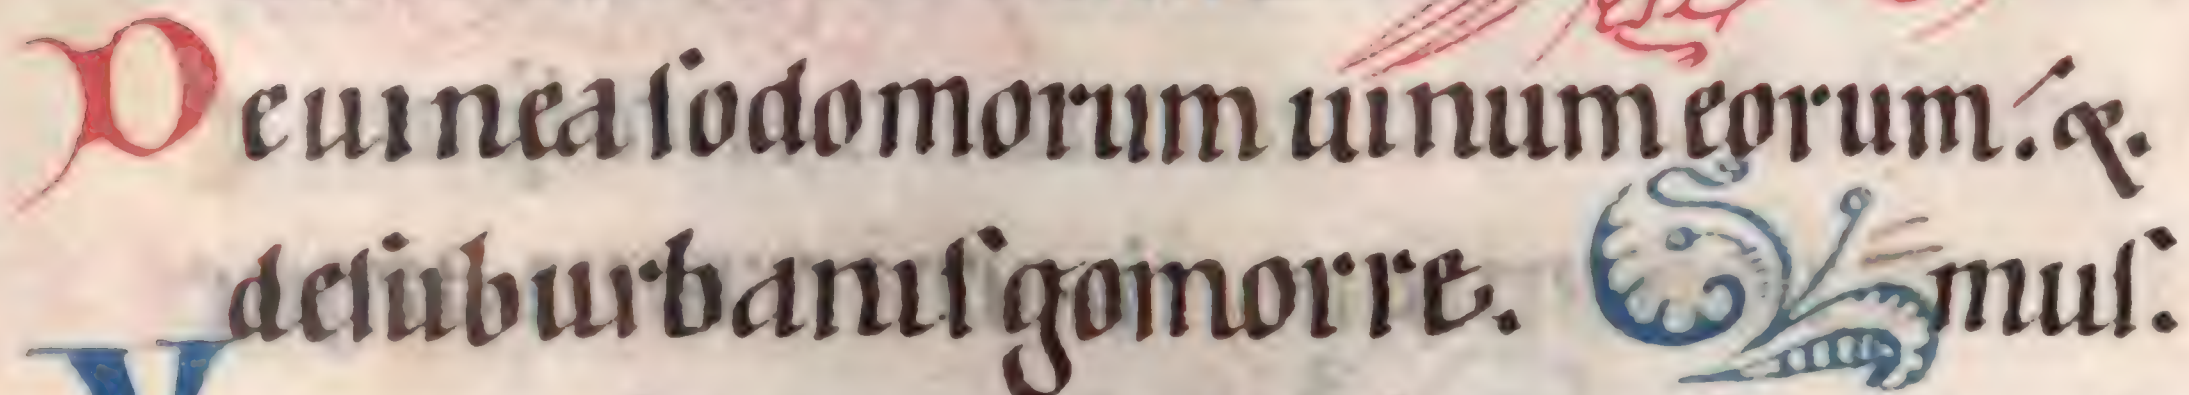 De uinea sodomorum uinum eorum: &.
de suburbanis gomorre. mus.
V